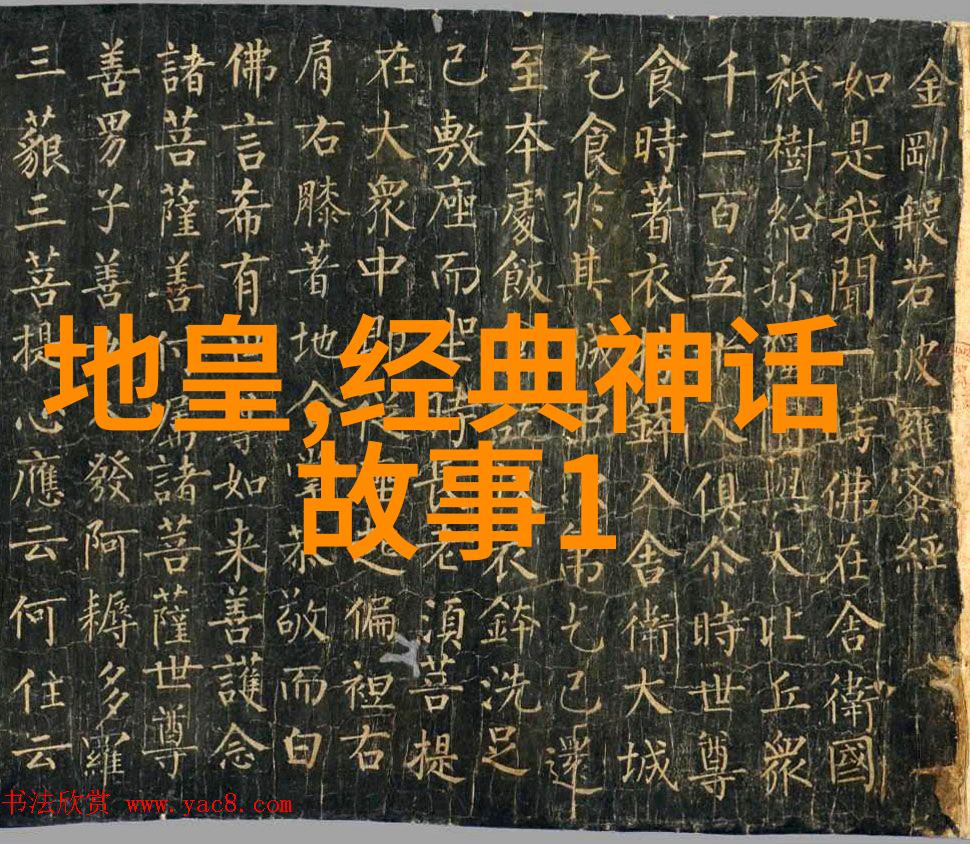 金剛般若波羅蜜經
如是我聞一時佛在舍衛國
祇樹給孤獨園與大比丘眾
千二百五十人俱尒時世尊
食時著衣持鉢入舍衛大城
乞食於其城中次第乞已還
至本處飯食訖收衣鉢洗足
已敷座而坐時長老須菩提
在大眾中即從座起偏袒右
肩右膝著地合掌恭敬而白
佛言希有世尊如来善護念
諸菩薩善付屬諸菩薩世尊
善男子善女人發阿耨多羅
三藐三菩提心應云何住云
地皇,经典神话
故事1
书法欣赏 www.yac8.com